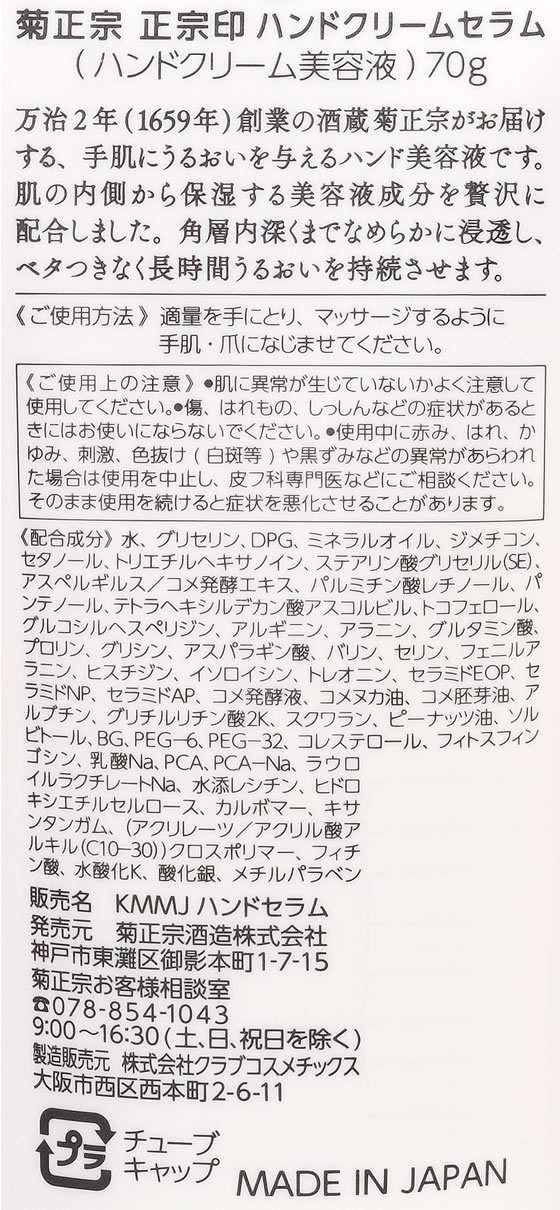 菊正宗 正宗印 ハンドクリームセラム
(ハンドクリーム美容液) 70g
万治2年(1659年)創業の酒蔵菊正宗がお届け
する、手肌にうるおいを与えるハンド美容液です。
肌の内側から保湿する美容液成分を贅沢に
配合しました。角層内深くまでなめらかに浸透し、
ベタつきなく長時間うるおいを持続させます。
《ご使用方法》適量を手にとり、マッサージするように
手肌・爪になじませてください。
《ご使用上の注意》●肌に異常が生じていないかよく注意して
使用してください。●傷、はれもの、しっしんなどの症状があると
きにはお使いにならないでください。●使用中に赤み、はれ、か
ゆみ、刺激、色抜け(白斑等)や黒ずみなどの異常があらわれ
た場合は使用を中止し、皮フ科専門医などにご相談ください。
そのまま使用を続けると症状を悪化させることがあります。
《配合成分》水、グリセリン、DPG、ミネラルオイル、ジメチコン、
セタノール、トリエチルヘキサノイン、ステアリン酸グリセリル(SE)、
アスペルギルス/コメ発酵エキス、パルミチン酸レチノール、パ
ンテノール、テトラヘキシルデカン酸アスコルビル、トコフェロール、
グルコシルヘスペリジン、アルギニン、アラニン、グルタミン酸、
プロリン、グリシン、アスパラギン酸、バリン、セリン、フェニルア
ラニン、ヒスチジン、イソロイシン、トレオニン、セラミドEOP、セ
ラミドNP、セラミドAP、コメ発酵液、コメヌカ油、コメ胚芽油、ア
ルブチン、グリチルリチン酸2K、スクワラン、ピーナッツ油、ソル
ビトール、BG、PEG-6、PEG-32、コレステロール、フィトスフィン
ゴシン、乳酸Na、PCA、PCA-Na、ラウロ
イルラクチレートNa、水添レシチン、ヒドロ
キシエチルセルロース、カルボマー、キサ
ンタンガム、(アクリレーツ/アクリル酸ア
ルキル(C10-30))クロスポリマー、フィチ
ン酸、水酸化K、酸化銀、メチルパラベン
販売名 KMMJ ハンドセラム
発売元 菊正宗酒造株式会社
神戸市東灘区御影本町1-7-15
菊正宗お客様相談室
☎078-854-1043
9:00～16:30(土、日、祝日を除く)
製造販売元 株式会社クラブコスメチックス
大阪市西区西本町2-6-11
プラ
チューブ
キャップ
MADE IN JAPAN